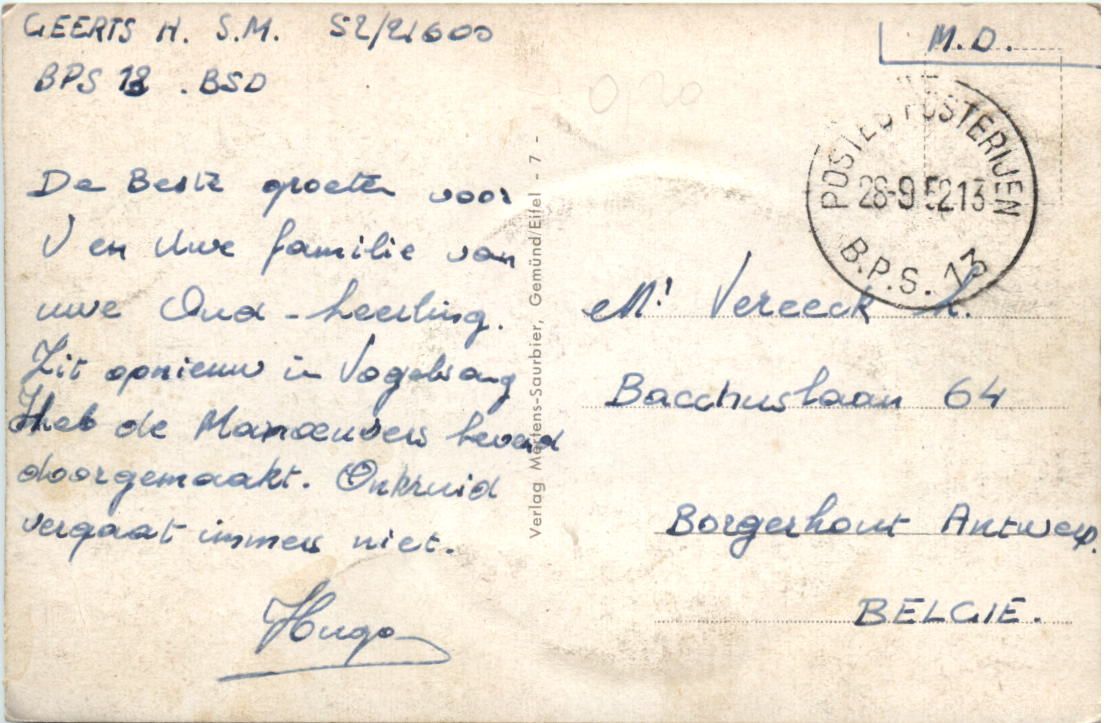 GEERTS H. S.M. 52/21600
BPS 13 . BSD
De Beste groeten voor
U en Uwe familie van
uwe Oud-Leerling.
Zit opnieuw in Vogelsang
Heb de Manoeuvers levend
doorgemaakt. Onkruid
vergaat immers niet.
Hugo
Verlag Mertens-Saurbier, Gemünd/Eifel - 7 -
0,20
M.D.
POSTES POSTERIJEN
28-9 52 13
B.P.S. 13
Mr Vereeck L.
Bacchuslaan 64
Borgerhout Antwerp.
BELGIE.